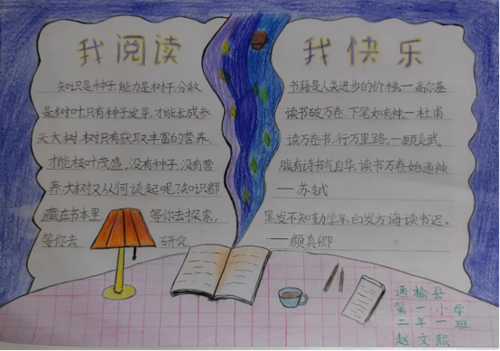 我阅读
知识是种子,能力是树干,分数
是树叶只有种子发芽,才能长成参
天大树,树只有获取丰富的营养,
才能枝叶茂盛,没有种子,没有营
养,大树又从何谈起呢?知识都
藏在书本里 等你去探索,
等你去 研究
我快乐
书籍是人类进步的阶梯—高尔基
读书破万卷,下笔如有神—杜甫
读万卷书,行万里路。—顾炎武
腹有诗书气自华,读书万卷始通神
—苏轼
黑发不知勤学早,白发方悔读书迟。
—颜真卿
通榆县
第一小学
二年一班
赵文熙